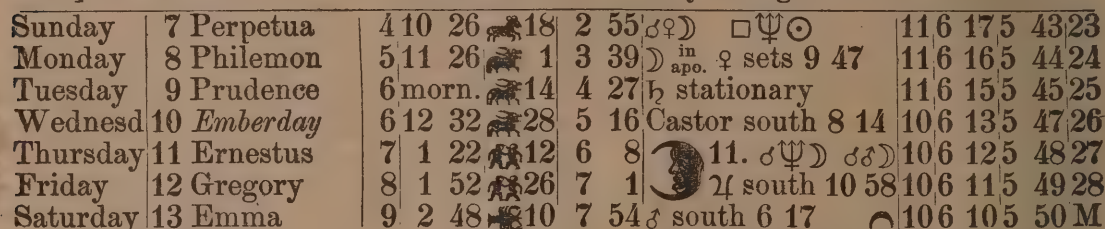 Sunday 7 Perpetua 4 10 26 18 2 55 ☌♀☽ □♆☉ 11 6 17 5 43 23
Monday 8 Philemon 5 11 26 1 3 39 ☽ in apo. ♀ sets 9 47 11 6 16 5 44 24
Tuesday 9 Prudence 6 morn. 14 4 27 ♄ stationary 11 6 15 5 45 25
Wednesd 10 Emberday 6 12 32 28 5 16 Castor south 8 14 10 6 13 5 47 26
Thursday 11 Ernestus 7 1 22 12 6 8 11. ☌♆☽ ☌♂☽ 10 6 12 5 48 27
Friday 12 Gregory 8 1 52 26 7 1 ♃ south 10 58 10 6 11 5 49 28
Saturday 13 Emma 9 2 48 10 7 54 ♂ south 6 17 10 6 10 5 50 M